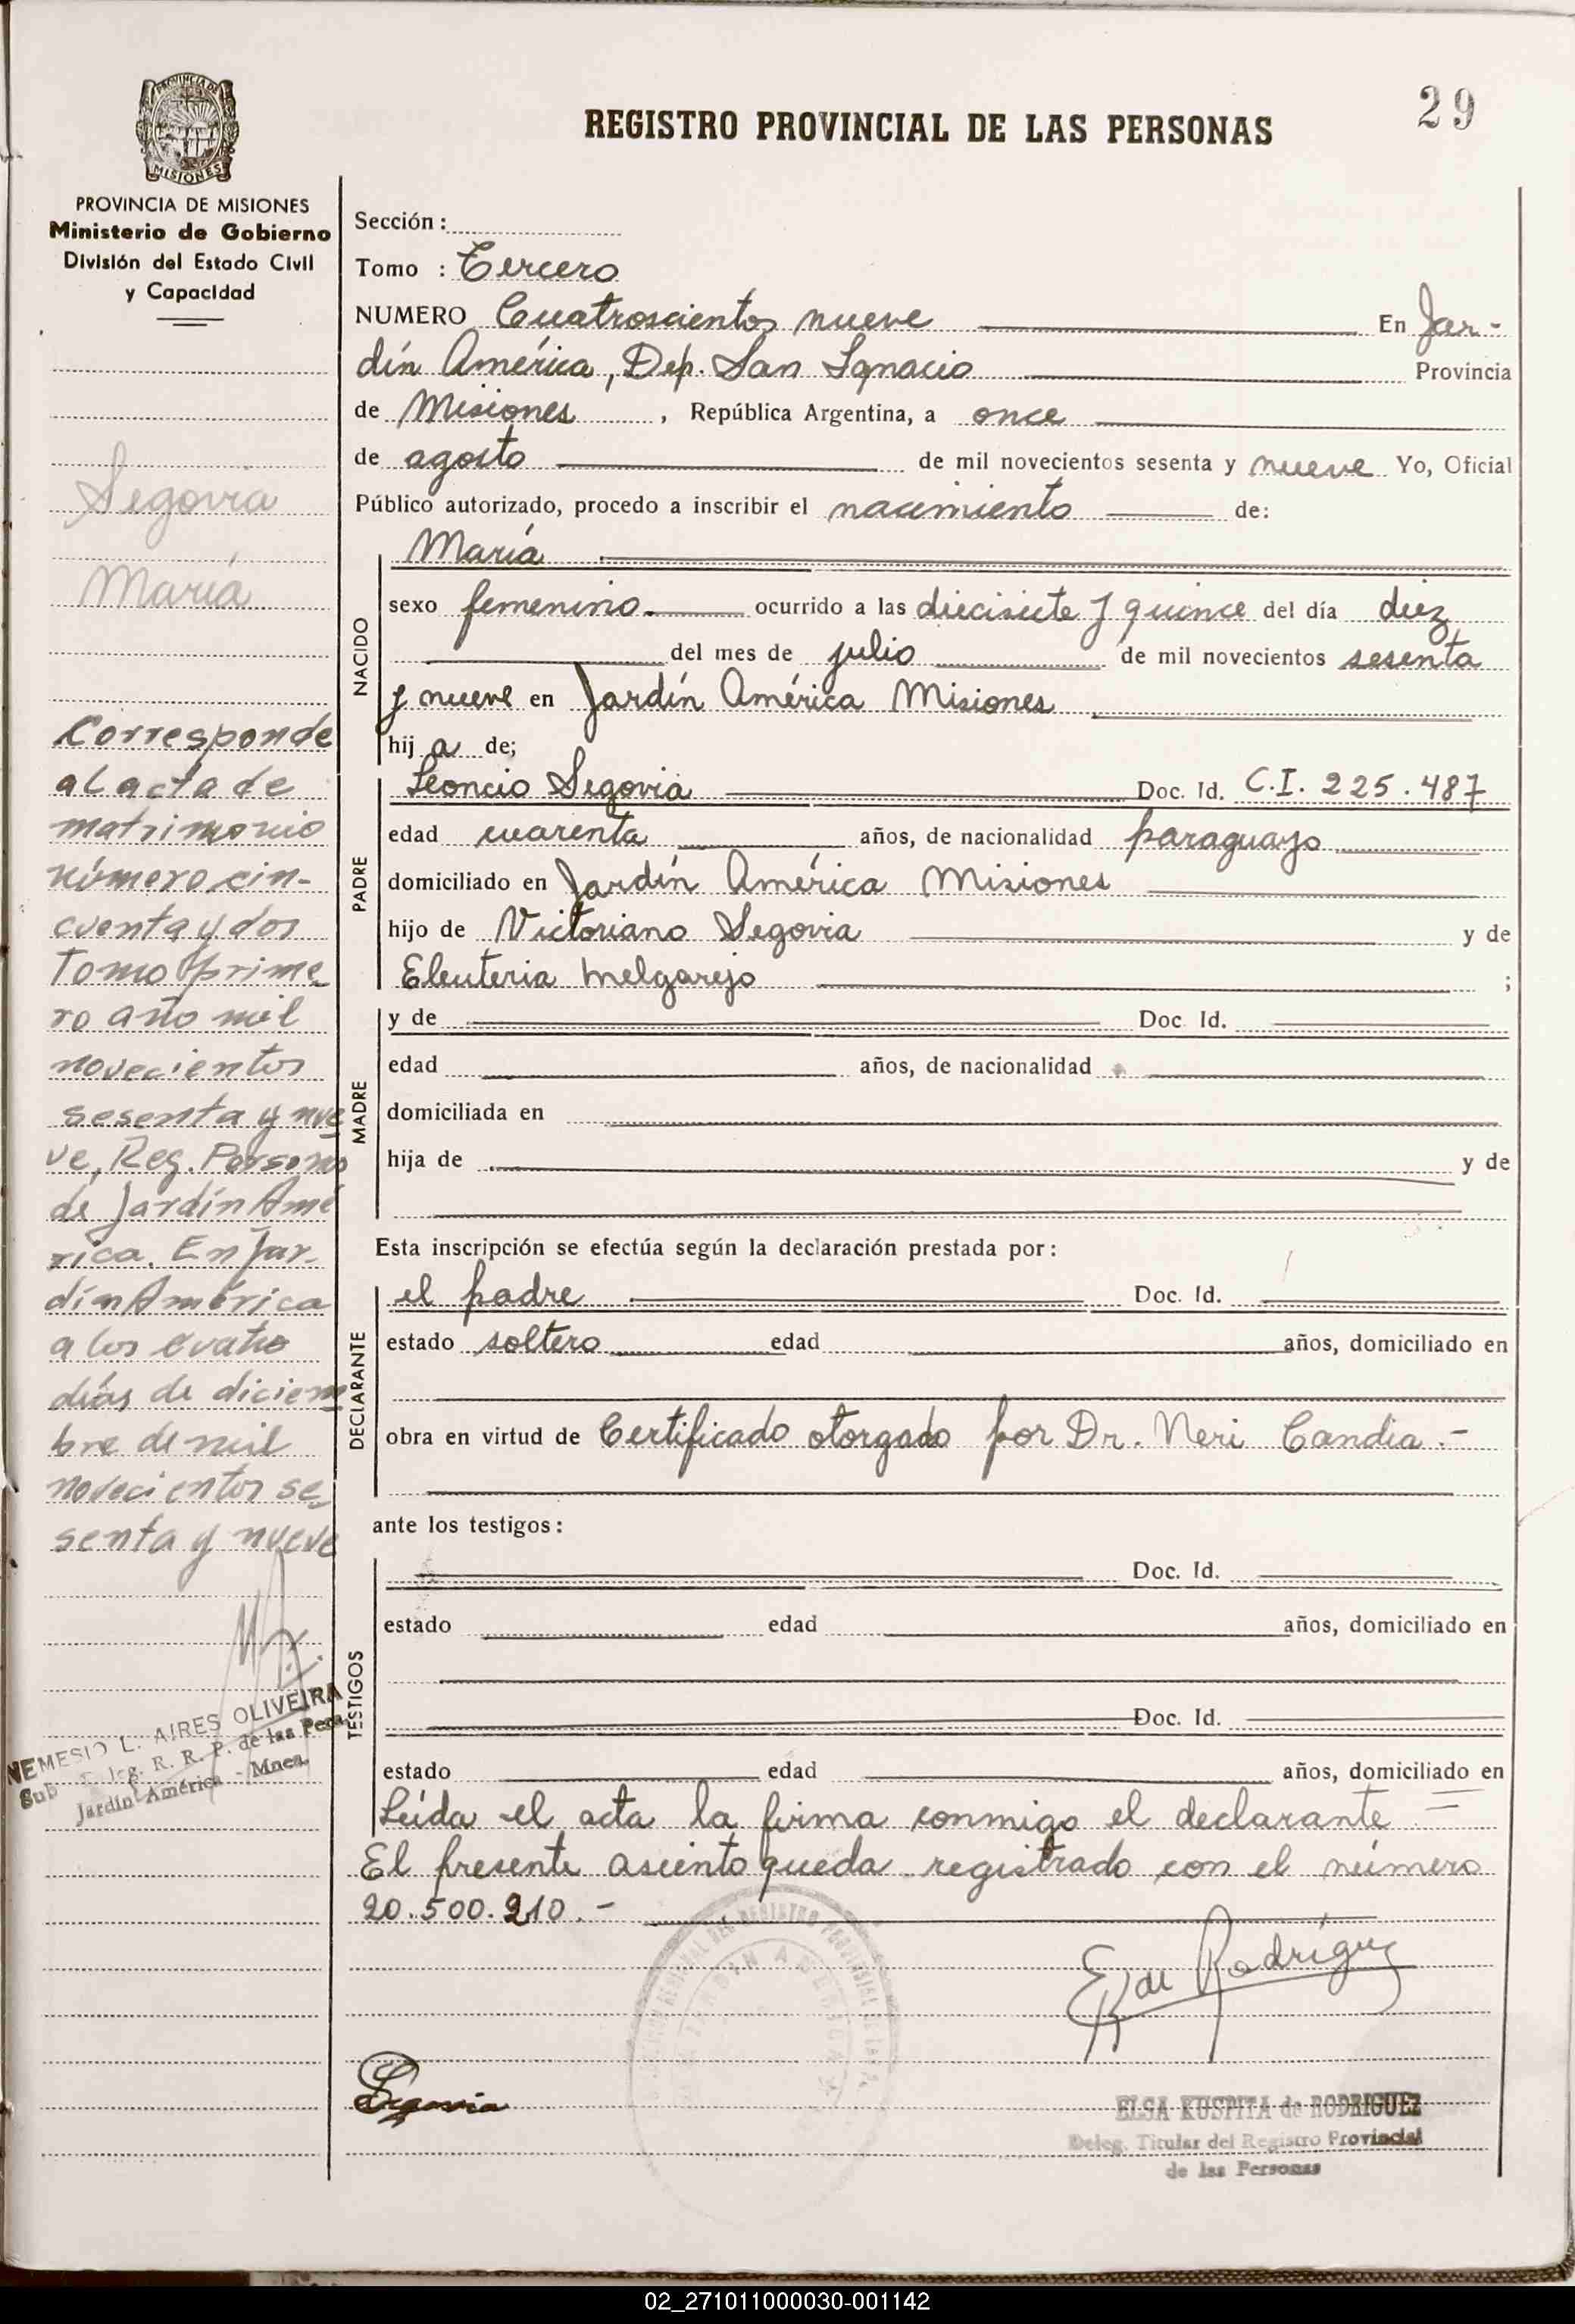 29
REGISTRO PROVINCIAL DE LAS PERSONAS
PROVINCIA DE
MISIONES
PROVINCIA DE MISIONES
Ministerio de Gobierno
División del Estado Civil
y Capacidad
Segovia
María
Corresponde
al acta de
matrimonio
número cin-
cuenta y dos
Tomo prime
ro año mil
novecientos
sesenta y nue
ve, Reg. Personas
de Jardín Amé
rica. En Jar-
dín América
a los cuatro
días de diciem
bre de mil
novecientos se
senta y nueve
NEMESIO L. AIRES OLIVEIRA
Sub Deleg. R. R. P. de las Pers.
Jardín América - Mnes.
Sección :
Tomo : Tercero
NUMERO Cuatroscientos nueve En Jar-
dín América, Dep. San Ignacio Provincia
de Misiones , República Argentina, a once
de agosto de mil novecientos sesenta y nueve Yo, Oficial
Público autorizado, procedo a inscribir el nacimiento de:
NACIDO
María
sexo femenino ocurrido a las diecisiete y quince del día diez
del mes de julio de mil novecientos sesenta
y nueve en Jardín América Misiones
hij a de;
PADRE
Leoncio Segovia Doc. Id. C.I. 225.487
edad cuarenta años, de nacionalidad paraguayo
domiciliado en Jardín América Misiones
hijo de Victoriano Segovia y de
Eleuteria Melgarejo ;
MADRE
y de Doc. Id.
edad años, de nacionalidad
domiciliada en
hija de y de
Esta inscripción se efectúa según la declaración prestada por:
DECLARANTE
el padre Doc. Id.
estado soltero edad años, domiciliado en
obra en virtud de Certificado otorgado por Dr. Neri Candia.-
ante los testigos:
TESTIGOS
Doc. Id.
estado edad años, domiciliado en
Doc. Id.
estado edad años, domiciliado en
Leída el acta la firma conmigo el declarante =
El presente asiento queda registrado con el número
20.500.210.-
E K de Rodríguez
Segovia
ELSA KUSPITA de RODRIGUEZ
Deleg. Titular del Registro Provincial
de las Personas
02_271011000030-001142